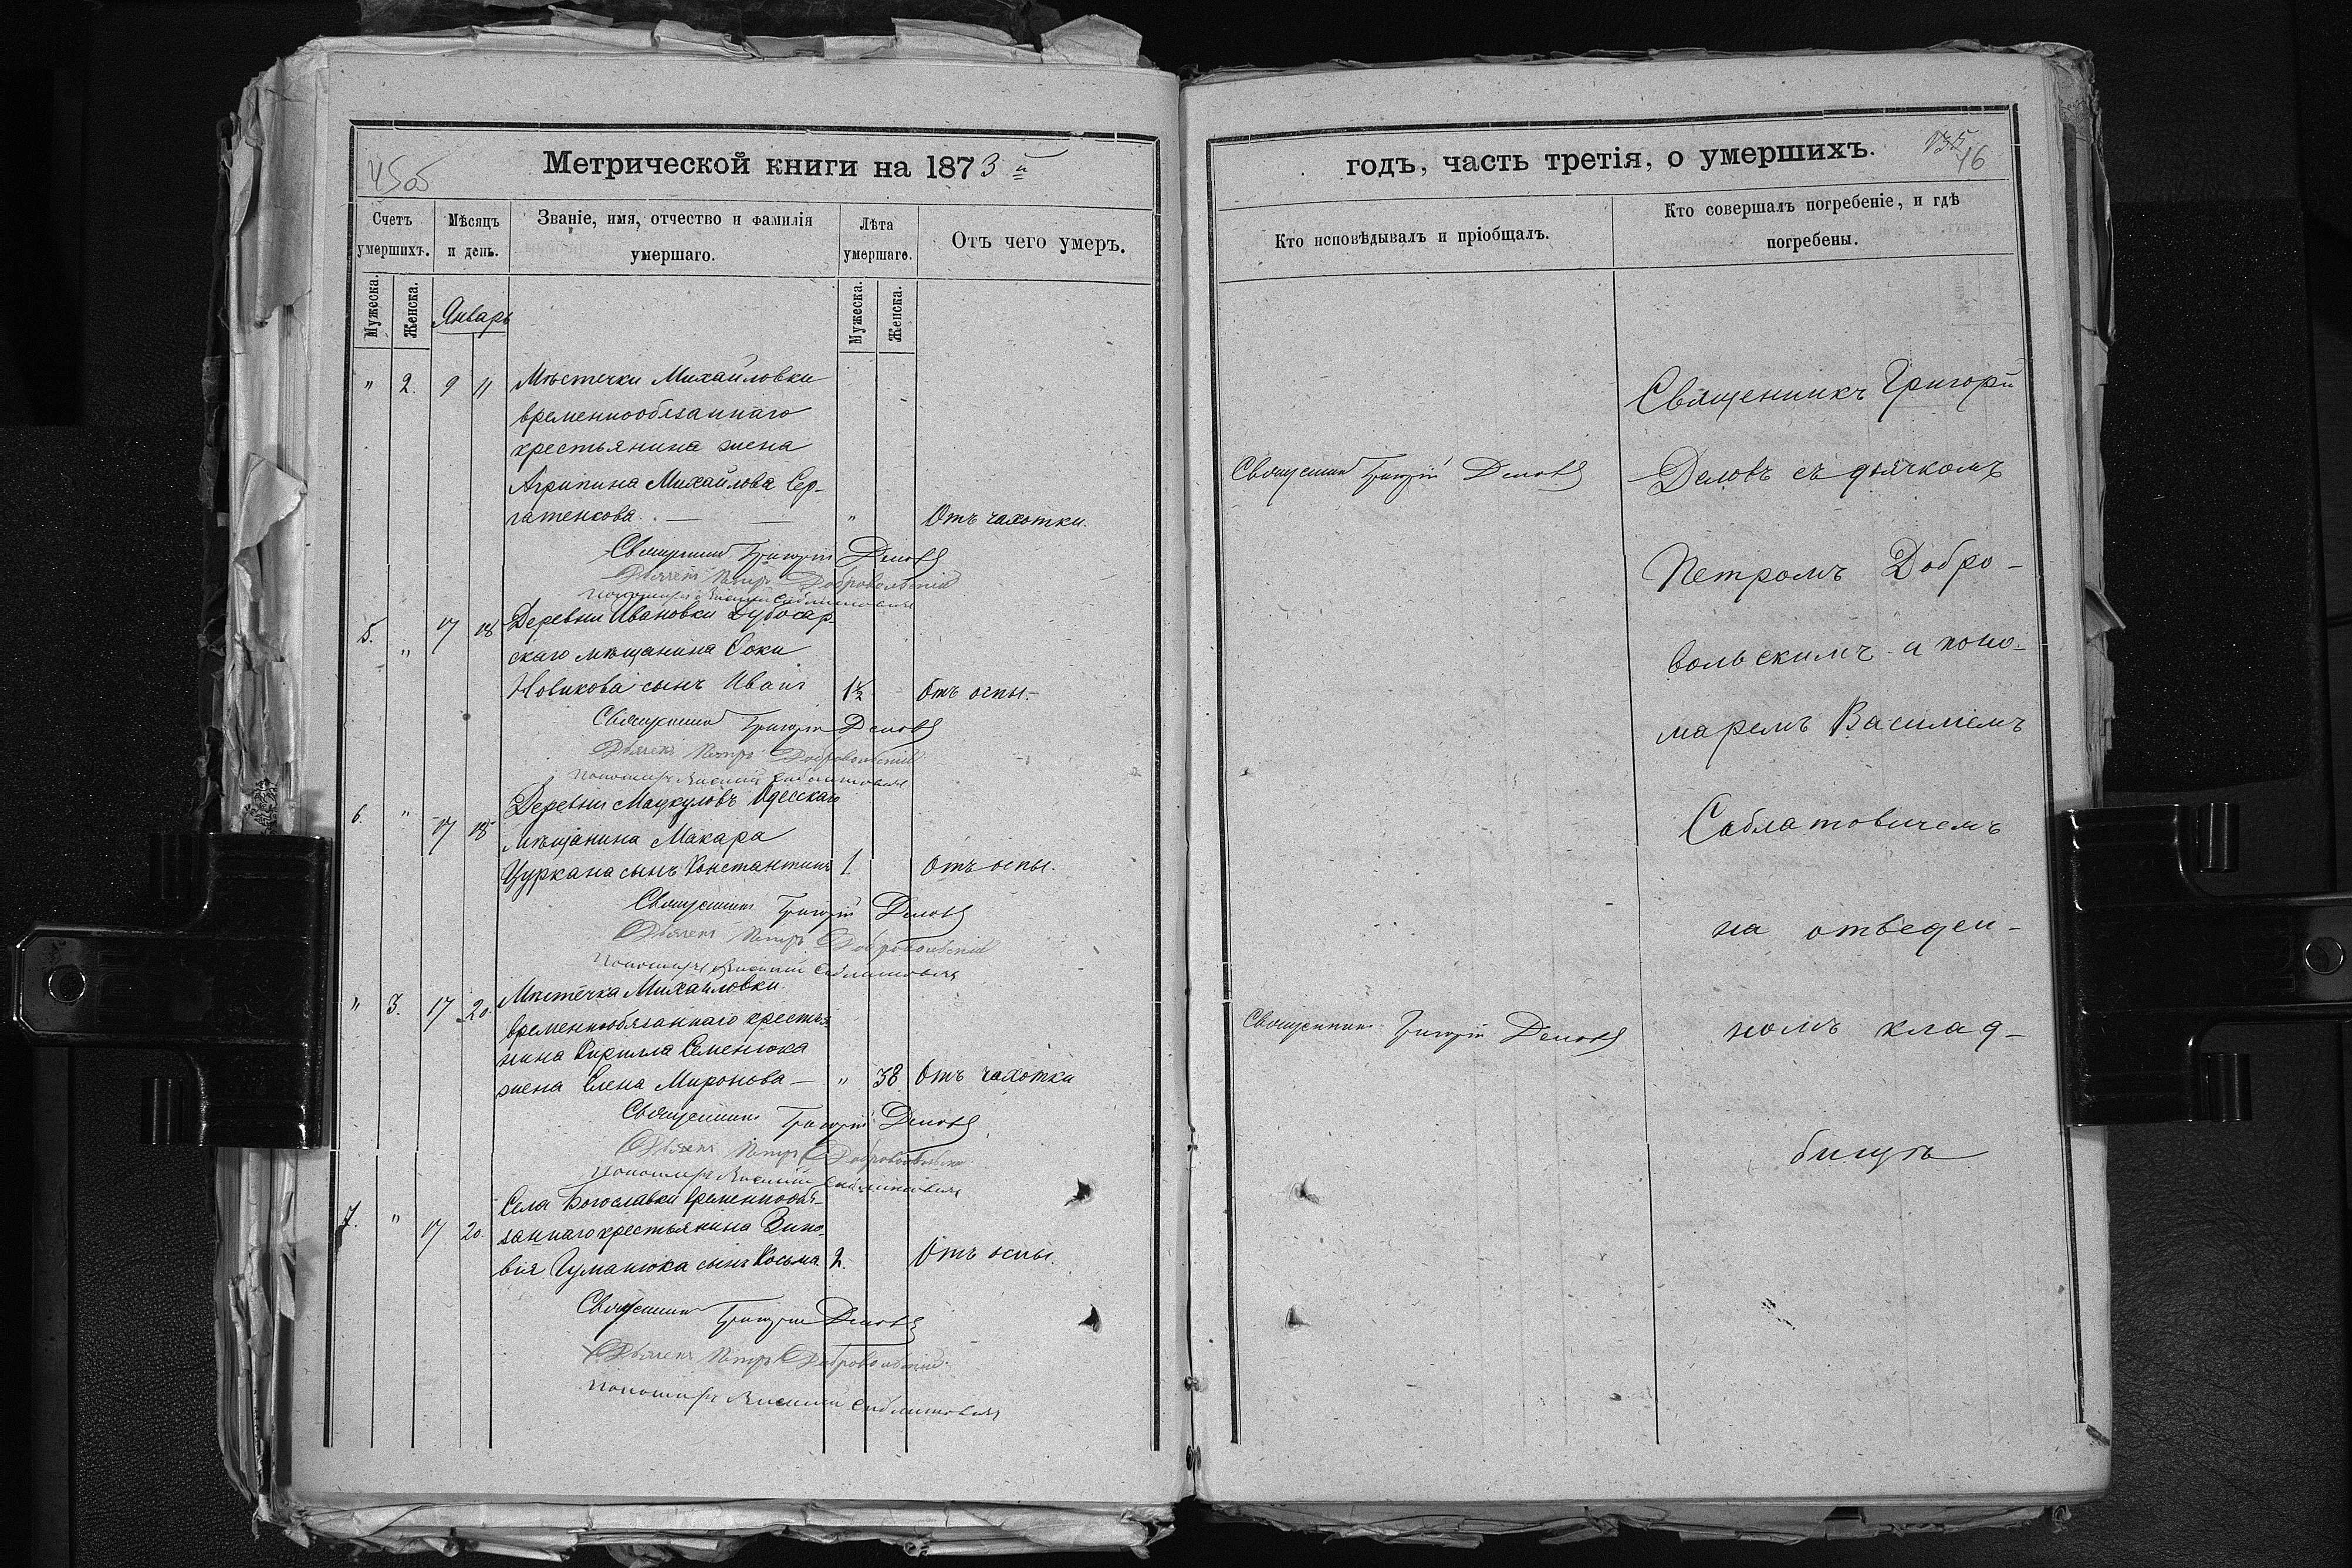 Метрической книги на 1873 й
Счетъ умершихъ.
Мѣсяцъ и день.
Званіе, имя, отчество и фамилія умершаго.
Лѣта умершаго.
Отъ чего умеръ.
Мужеска.
Женска.
Январь
Мужеска.
Женска.
" 2. 9 11 Мѣстечки Михайловки
временнообязаннаго
крестьянина жена
Агрипина Михайлова Сер-
гатенкова. — — " Отъ чахотки.
Священникъ Григорій Деловъ
Дьячекъ Петръ Добровольскій
Пономарь Василій Саблатовичъ
5. " 17 18 Деревни Ивановки Дубосар-
скаго мѣщанина Фоки
Новикова сынъ Иванъ 1½ Отъ оспы.
Священникъ Григорій Деловъ
Дьячекъ Петръ Добровольскій
Пономарь Василій Саблатовичъ
6. " 17 18 Деревни Одесскаго
мѣщанина Макара
Цуркана сынъ Константинъ 1. Отъ оспы.
Священникъ Григорій Деловъ
Дьячекъ Петръ Добровольскій
Пономарь Василій Саблатовичъ
" 3. 17 20. Мѣстечка Михайловки
временнообязаннаго крестья-
нина Кирилла Семенюка
жена Елена Миронова — " 38 Отъ чахотки
Священникъ Григорій Деловъ
Дьячекъ Петръ Добровольскій
Пономарь Василій Саблатовичъ
7. " 17 20. Села Богославки временнообя-
заннаго крестьянина Зино-
вія Чуманюка сынъ Косьма 2. Отъ оспы.
Священникъ Григорій Деловъ
Дьячекъ Петръ Добровольскій
Пономарь Василій Саблатовичъ
годъ, часть третія, о умершихъ.
46
Кто исповѣдывалъ и пріобщалъ.
Кто совершалъ погребеніе, и гдѣ погребены.
Священникъ Григорій Деловъ
Священникъ Григорій Деловъ
Священникъ Григорій
Деловъ съ дьячкомъ
Петромъ Добро-
вольскимъ и поно-
маремъ Василіемъ
Саблатовичемъ
на отведен-
номъ клад-
бищѣ